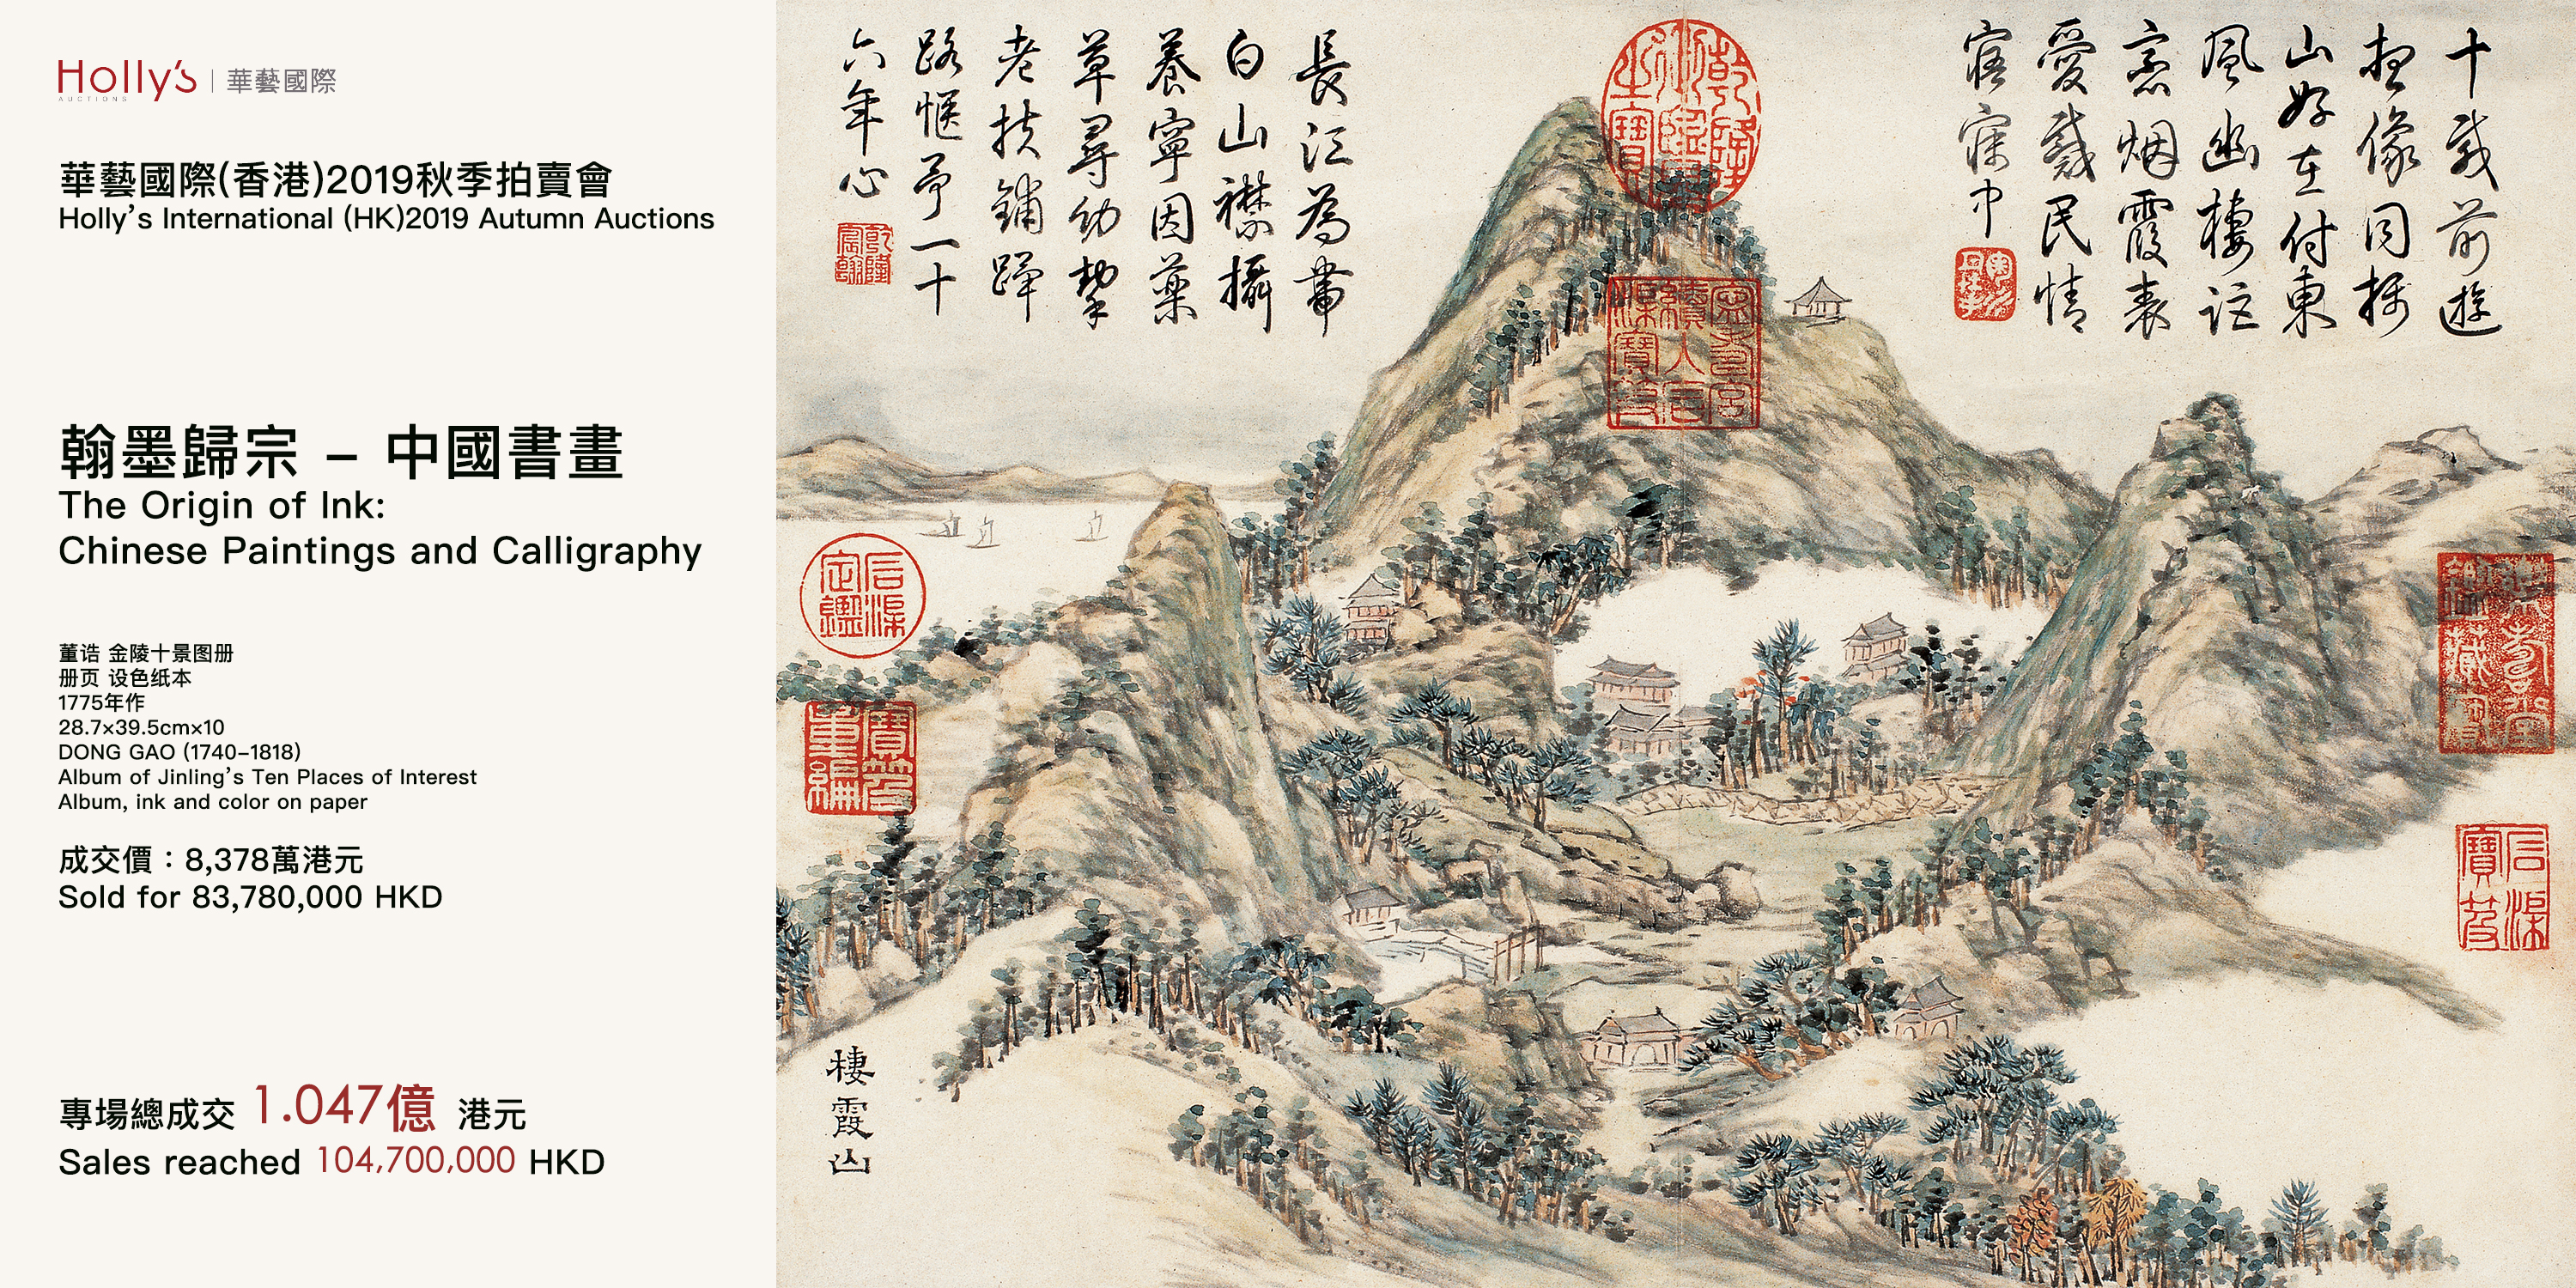 Holly's
AUCTIONS
華藝國際
華藝國際(香港)2019秋季拍賣會
Holly's International (HK)2019 Autumn Auctions
翰墨歸宗 – 中國書畫
The Origin of Ink:
Chinese Paintings and Calligraphy
董诰 金陵十景图册
册页 设色纸本
1775年作
28.7×39.5cm×10
DONG GAO (1740–1818)
Album of Jinling's Ten Places of Interest
Album, ink and color on paper
成交價：8,378萬港元
Sold for 83,780,000 HKD
專場總成交 1.047億 港元
Sales reached 104,700,000 HKD
十載前遊
想像同攝
山好在付東
風幽棲詎
意烟霞表
愛戴民情
寤寐中
長江為帶
白山襟攝
養寧因藥
草尋幼挈
老扶鋪蹕
路愜予一十
六年心
乾隆宸翰
寧壽宮續入石渠寶笈
石渠定鑑
寶笈重編
石渠寶笈
棲霞山